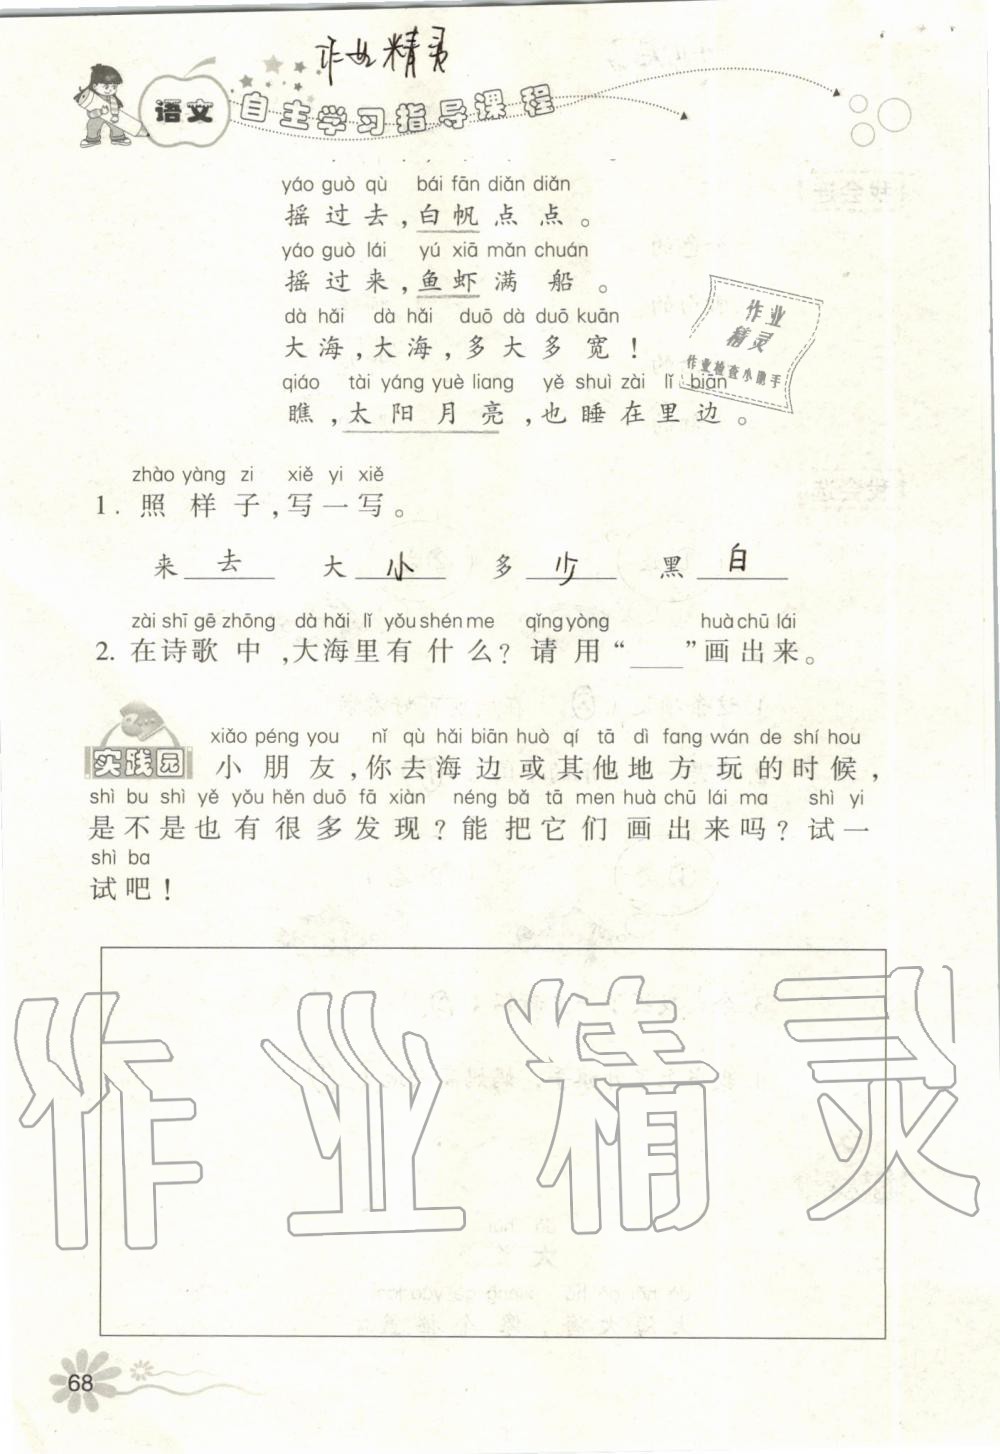 作业精灵
语文 自主学习指导课程
yáo guò qù bái fān diǎn diǎn
摇过去,白帆点点。
yáo guò lái yú xiā mǎn chuán
摇过来,鱼虾满船。
dà hǎi dà hǎi duō dà duō kuān
大海,大海,多大多宽!
qiáo tài yáng yuè liang yě shuì zài lǐ biān
瞧,太阳月亮,也睡在里边。
作业
精灵
作业检查小助手
zhào yàng zi xiě yi xiě
1. 照样子,写一写。
来 去 大 小 多 少 黑 白
zài shī gē zhōng dà hǎi lǐ yǒu shén me qǐng yòng huà chū lái
2. 在诗歌中,大海里有什么?请用“___”画出来。
xiǎo péng you nǐ qù hǎi biān huò qí tā dì fang wán de shí hou
实践园 小朋友,你去海边或其他地方玩的时候,
shì bu shì yě yǒu hěn duō fā xiàn néng bǎ tā men huà chū lái ma shì yi
是不是也有很多发现?能把它们画出来吗?试一
shì ba
试吧!
作业精灵
68